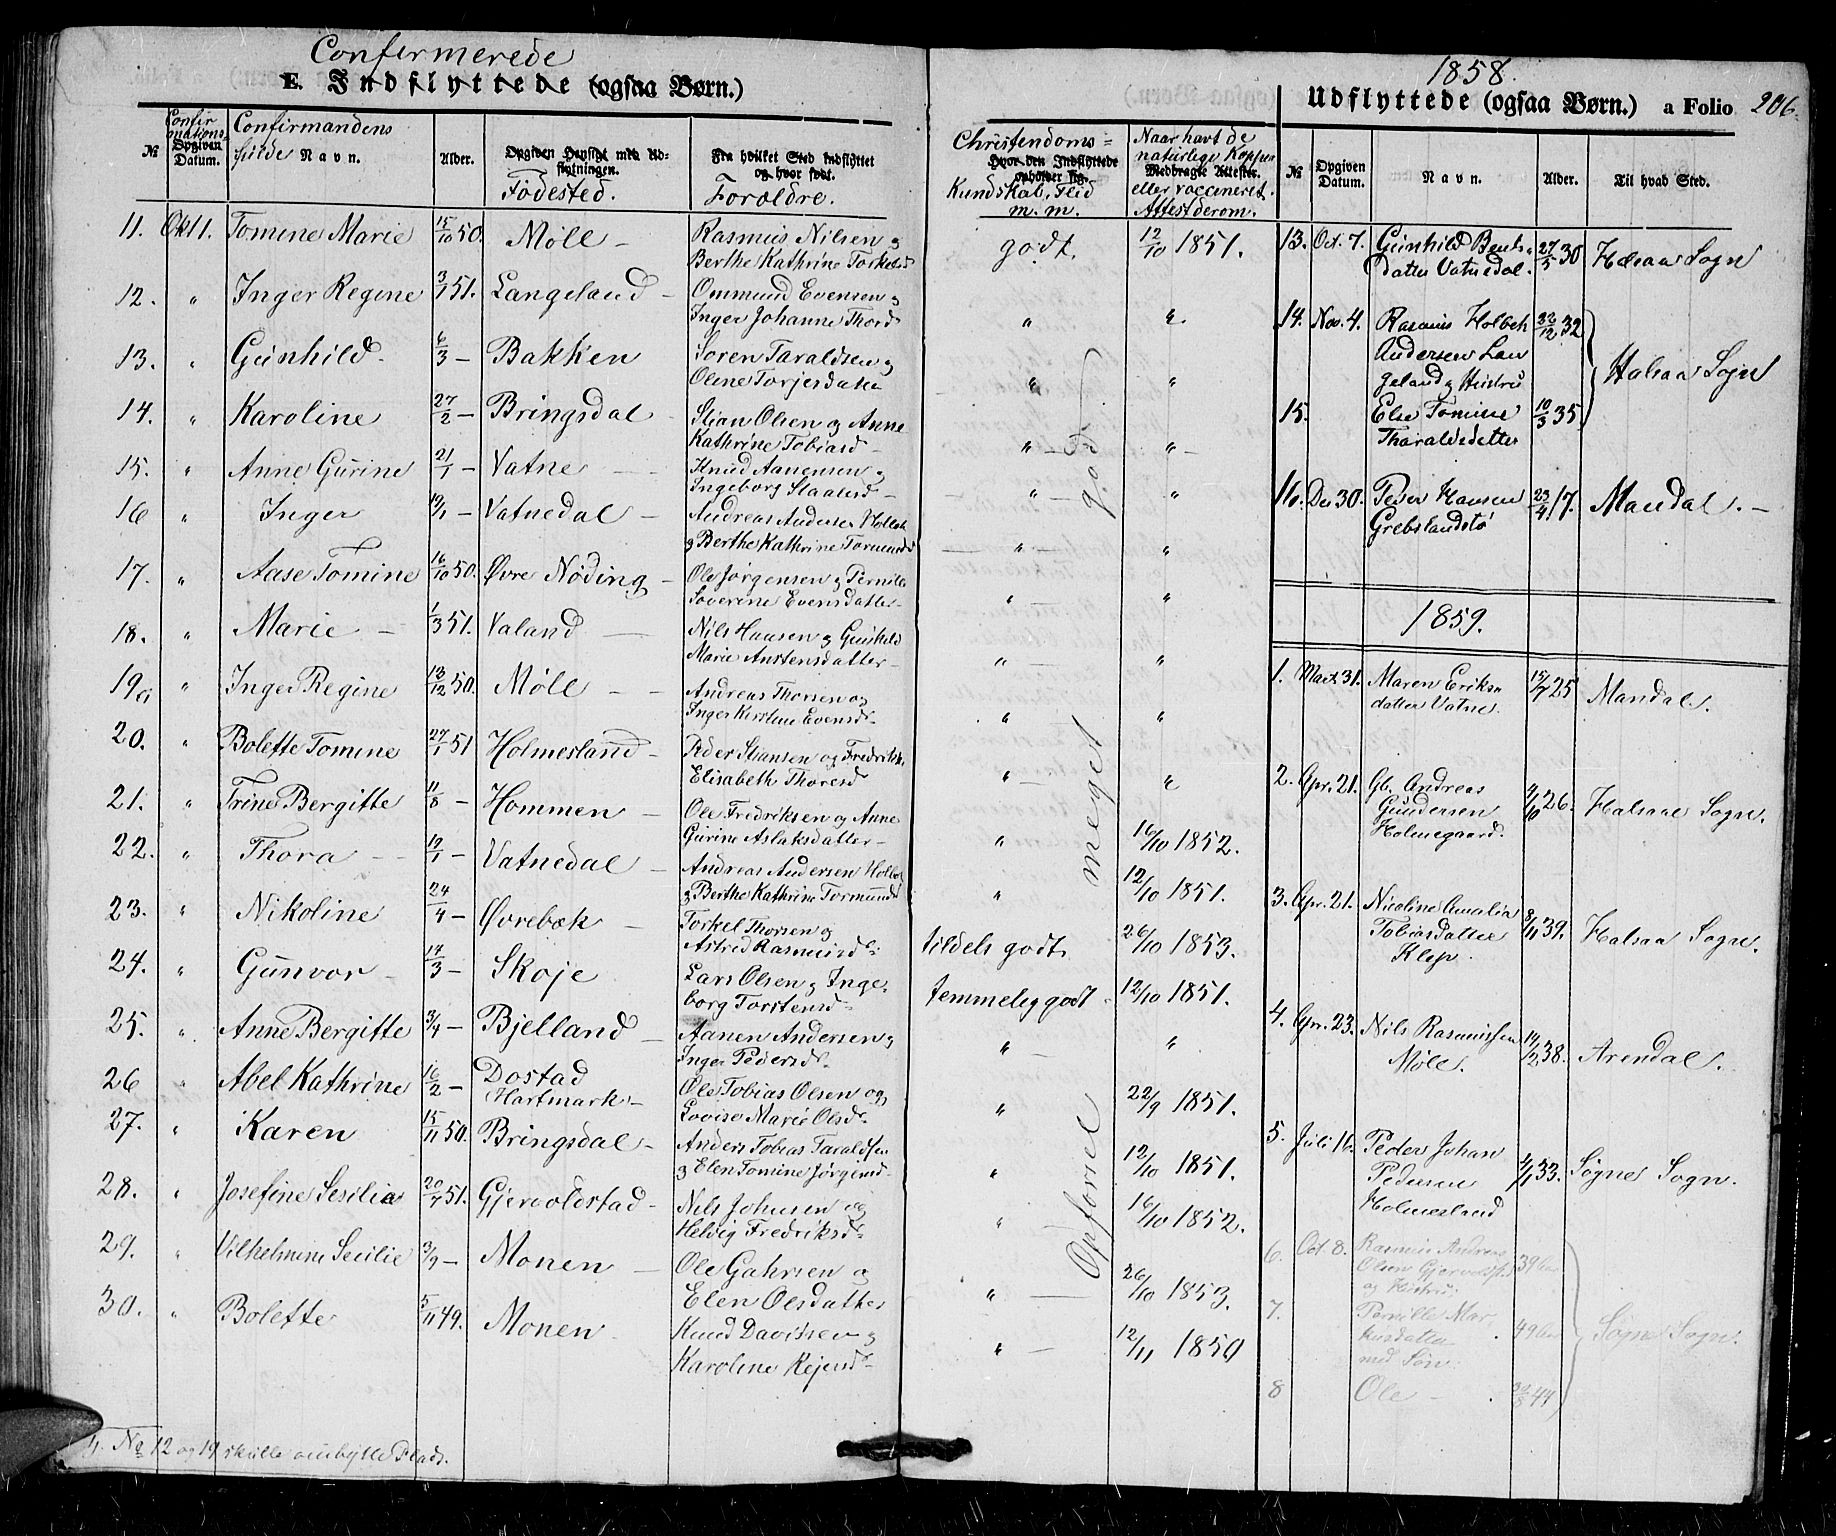 Confirmerede
E. Indflyttede (ogsaa Børn.)
Confirmations
Opgiven Datum.
Confirmandens fulde Navn.
№
Alder.
Opgiven Hensigt med Udflytningen.
Fødested.
Fra hvilket Sted indflyttet og hvor født.
Forældre.
11. Okt 1. Tomine Marie 15/10 50. Møll - Rasmus Nilsen og
Berthe Kathrine Torkelsd
12. " Inger Regine 3/1 51. Langeland - Ommund Evensen og
Inger Johanne Thord
13. " Gunhild 6/3 - Bakken Soren Taraldsen og
Oline Torjersdatter
14. " Karoline 27/2 - Bringsdal - Stian Olsen og Anne
Kathrine Tobiasd
15. " Anne Gurine 21/1 - Vatne - Knud Aanensen og
Ingeborg Slaatesd -
16 " Inger 19/1 - Vatnedal - Andreas Andersen Holbek
og Berthe Kathrine Tormunds
17. " Aase Tomine 16/10 50. Øvre Nøding - Ole Jørgensen og Pernille
Soverine Evensdatter -
18. " Marie - 1/3 51. Valand - Nils Hansen og Gunhild
Marie Anstensdatter -
19 " Inger Regine 13/12 50. Møll - - Andreas Thorsen og
Inger Kirstine Evensd
20. " Bolette Tomine 27/1 51 Holmesland - Peder Stiansen og Fredrikke
Elisabeth Thoresd
21. " Trine Bergitte 11/8 - Hommen - Ole Fredriksen og Anne
Gurine Aslaksdatter -
22. " Thora - - 19/1 - Vatnedal - Andreas Andersen Holbek
og Berthe Kathrine Tormunds
23. " Nikoline 24/4 - Øvrebæk - Torkel Thorsen og
Astrid Rasmusd
24. " Gunvor - 17/3 - Skoje Lars Olsen og Inge-
borg Torstensd
25. " Anne Bergitte 3/4 - Bjelland - Aanen Andersen og
Inger Pedersd
26 " Abel Kathrine 16/2 - Dostad
Hartmark - Ole Tobias Olsen og
Lovise Marie Olsd
27. " Karen 15/11 50. Bringsdal - Anders Tobias Taraldsen
og Elen Tomine Jørgensd
28. " Josefine Sesilia 20/7 51. Gjervoldstad - Nils Johnsen og
Helvig Fredriksd
29. " Vilhelmine Secilie 3/9 - Monen - Ole Gahrsen og
Elen Olsdatter
30. " Bolette 5/11 49. Monen - Knud Davidsen og
Karoline Rejersd
No 12 og 19 skulle ombytte Plads.
Christendoms-
Hvor den Indflyttede opholder sig.
Kundskab, Flid
m.m.
Naar havt de
naturlige Kopper
Medbragte Attester.
eller vaccineret.
Attest derom.
godt. 12/10 1851.
" "
" "
" - " -
" - "
" - "
" "
" - "
" "
" - "
" 16/10 1852.
" 12/10 1851.
tildels godt 26/10 1853.
temmelig godt - 12/10 1851.
" - "
" 22/9 1851.
" 12/10 1851.
" 16/10 1852.
" - 26/10 1853.
" - 12/11 1850
Opførsel meget god
1858.
Udflyttede (ogsaa Børn.) a Folio 206.
№ Opgiven Datum. Navn. Alder. Til hvad Sted.
13. Oct. 7. Gunhild Bents-
datter Vatnedal. 27/5 30 Halsaa Sogn
14. Nov. 4. Rasmus Holbek
Andersen Lan
geland og Hustru 32 Halsaa Sogn
15. Else Tomine
Tharaldsdatter 10/3 35
16. Dec 30. Peder Hansen
Grebslandstø 23/4 17. Mandal. -
1859.
1. Mart. 31. Maren Eriks
datter Vatne. 25 Mandal.
2. Apr. 21. Gb. Andreas
Gundersen
Holmegaard. 26. Halsaa Sogn.
3. Apr. 21. Nicoline Amalia
Tobiasdatter
Klep. 8/11 39. Halsaa Sogn.
4. Apr. 23. Nils Rasmussen
Møll. 14/2 38. Arendal.
5. Juli 16. Peder Johan
Pedersen
Holmesland 33. Søgne Sogn.
6. Oct. 8. Rasmus Andreas
Olsen Gjervoldstad
og Hustru 39 Aar
7. Pernille Mar-
kusdatter
med Søn. 49 Aar Søgne Sogn.
8 Ole - 44